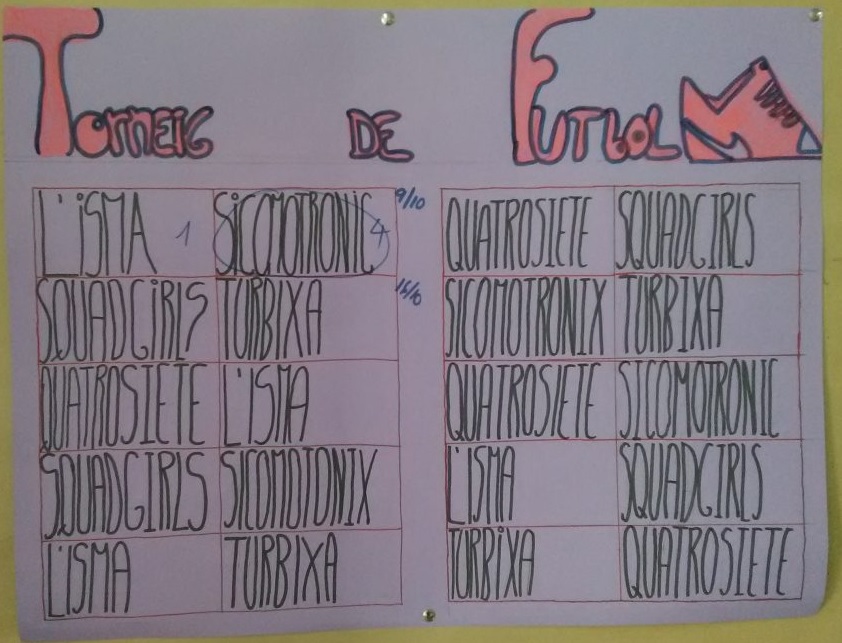 TORNEIG DE FUTBOL
L'ISMA 1 SICOMOTRONIC 4 9/10
SQUADGIRLS TURBIXA 16/10
QUATROSIETE L'ISMA
SQUADGIRLS SICOMOTONIX
L'ISMA TURBIXA
QUATROSIETE SQUADGIRLS
SICOMOTRONIX TURBIXA
QUATROSIETE SICOMOTRONIC
L'ISMA SQUADGIRLS
TURBIXA QUATROSIETE